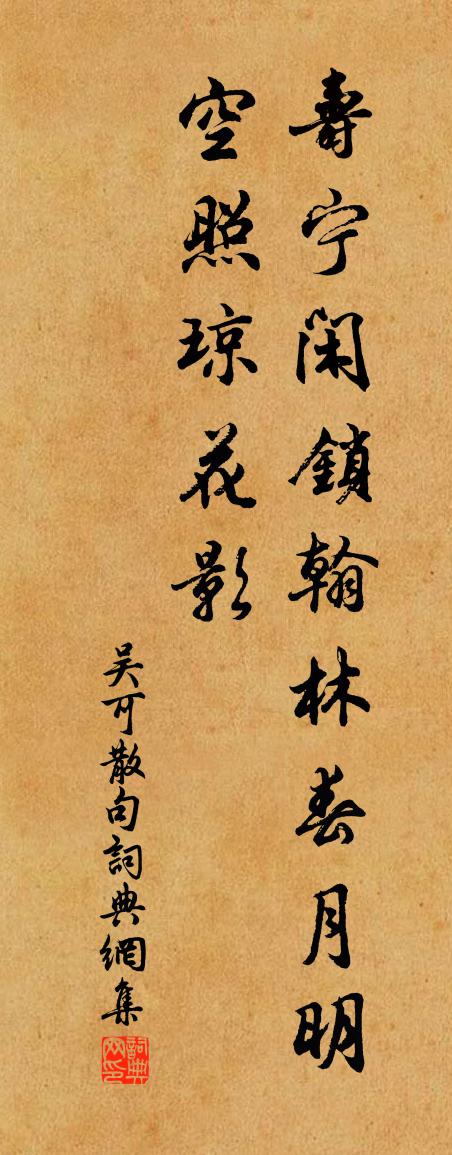 壽宁闲鎖翰林春月明
空照琼花影
吴可散句詞典網集
詞典网印